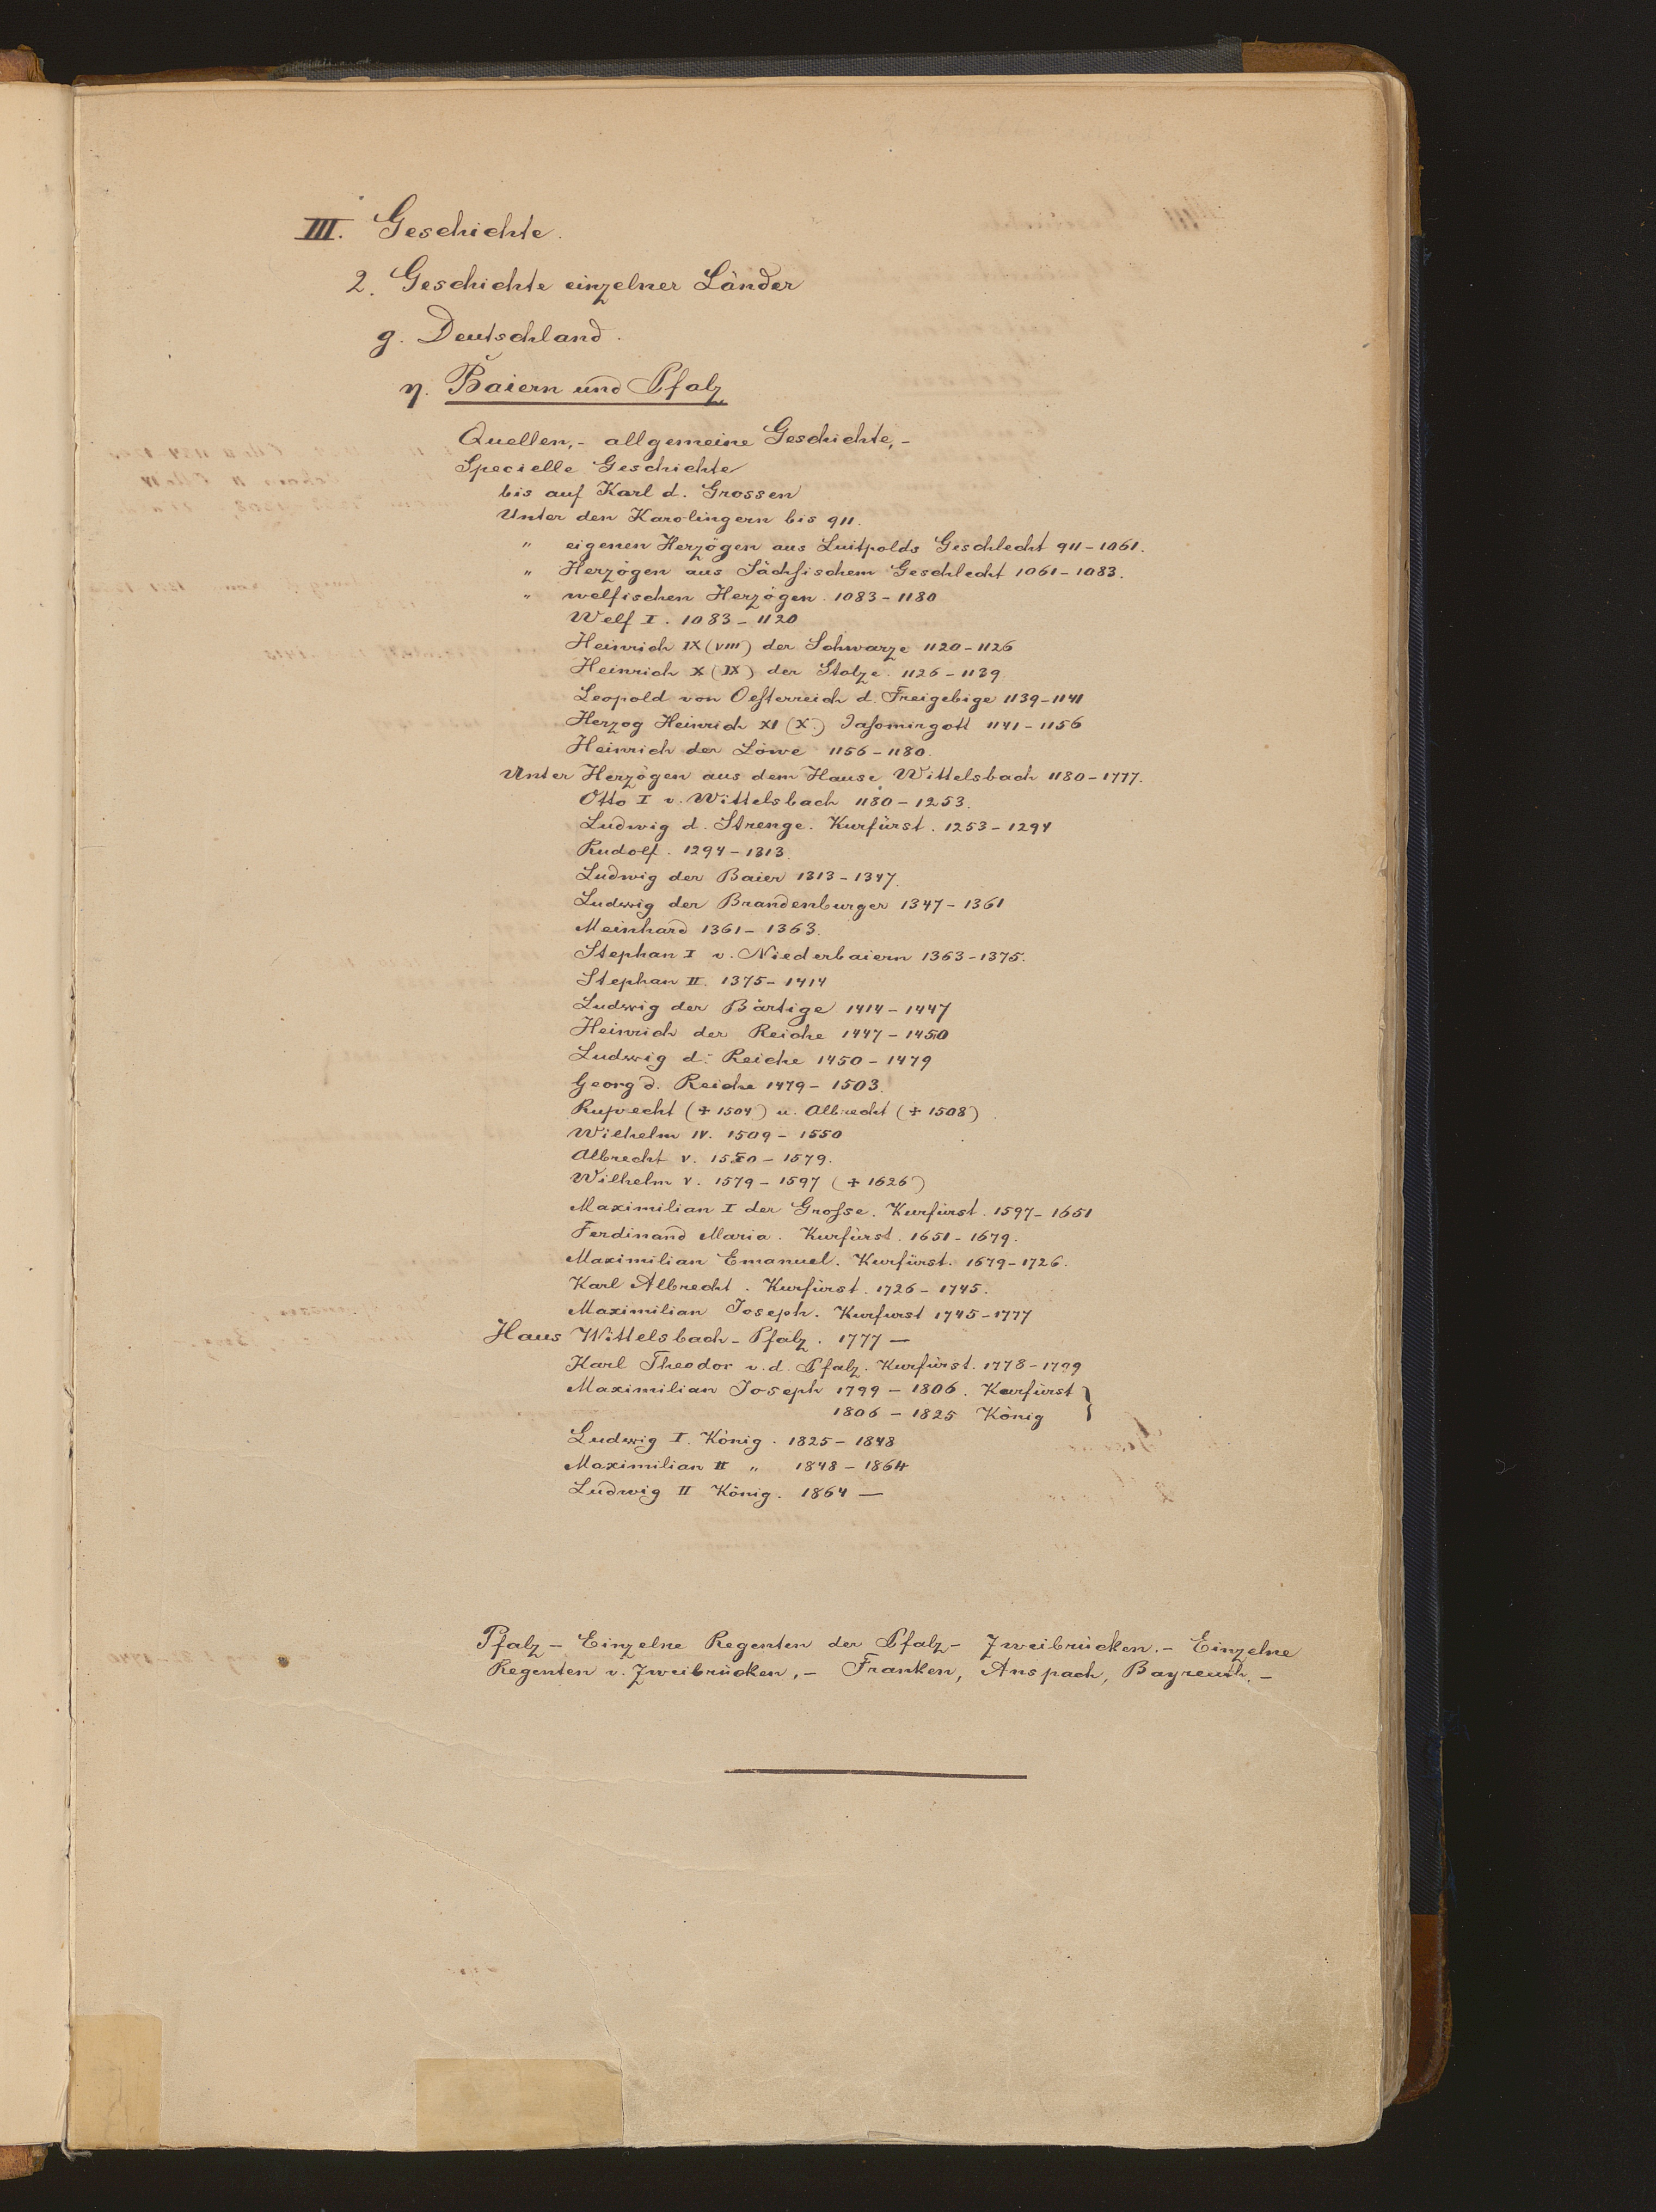 III. Geschichte.
2. Geschichte einzelner Länder
g. Deutschland.
η. Baiern und Pfalz
Quellen,- allgemeine Geschichte,-
Specielle Geschichte
bis auf Karl d. Grossen
Unter den Karolingern bis 911.
" eigenen Herzögen aus Luitpolds Geschlecht 911-1061.
" Herzögen aus Sächsischem Geschlecht 1061-1083.
" welfischen Herzögen. 1083-1180
Welf I. 1083-1120
Heinrich IX (VIII) der Schwarze 1120-1126
Heinrich X (IX) der Stolze. 1126-1139
Leopold von Oesterreich d. Freigebige 1139-1141
Herzog Heinrich XI (X.) Jasomirgott 1141-1156
Heinrich der Löwe 1156-1180.
Unter Herzögen aus dem Hause Wittelsbach 1180-1777.
Otto I v. Wittelsbach 1180-1253.
Ludwig d. Strenge. Kurfürst. 1253-1294
Rudolf. 1294-1313.
Ludwig der Baier 1313-1347.
Ludwig der Brandenburger 1347-1361
Meinhard 1361-1363.
Stephan I v. Niederbaiern 1363-1375.
Stephan II. 1375-1414
Ludwig der Bärtige 1414-1447
Heinrich der Reiche 1447-1450
Ludwig d. Reiche 1450-1479
Georg d. Reiche 1479-1503.
Ruprecht (+ 1504) u. Albrecht (+ 1508)
Wilhelm IV. 1509-1550
Albrecht V. 1550-1579.
Wilhelm V. 1579-1597 (+ 1626)
Maximilian I der Grosse. Kurfürst. 1597-1651
Ferdinand Maria. Kurfürst. 1651-1679.
Maximilian Emanuel. Kurfürst. 1679-1726.
Karl Albrecht. Kurfürst. 1726-1745.
Maximilian Joseph. Kurfurst 1745-1777
Haus Wittelsbach-Pfalz. 1777 —
Karl Theodor v. d. Pfalz. Kurfürst. 1778-1799
Maximilian Joseph 1799-1806. Kurfürst }
1806-1825 König
Ludwig I. König. 1825-1848
Maximilian II " 1848-1864
Ludwig II König. 1864 —
Pfalz - Einzelne Regenten der Pfalz - Zweibrücken.- Einzelne
Regenten v. Zweibrücken,- Franken, Anspach, Bayreuth.-